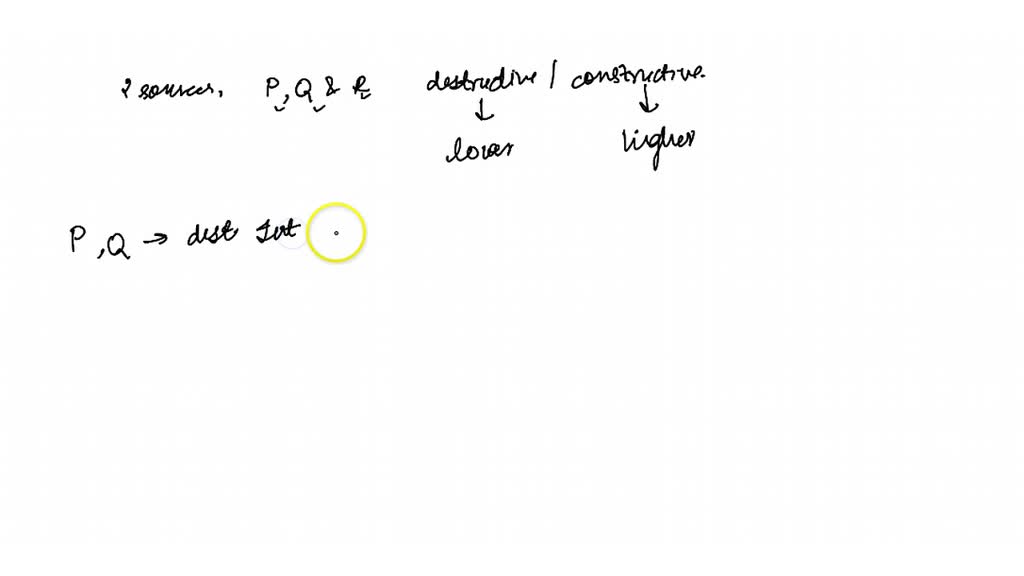 2 sources, P, Q & R destructive / constructive.
↓ ↓
lower higher
P, Q → dest Int